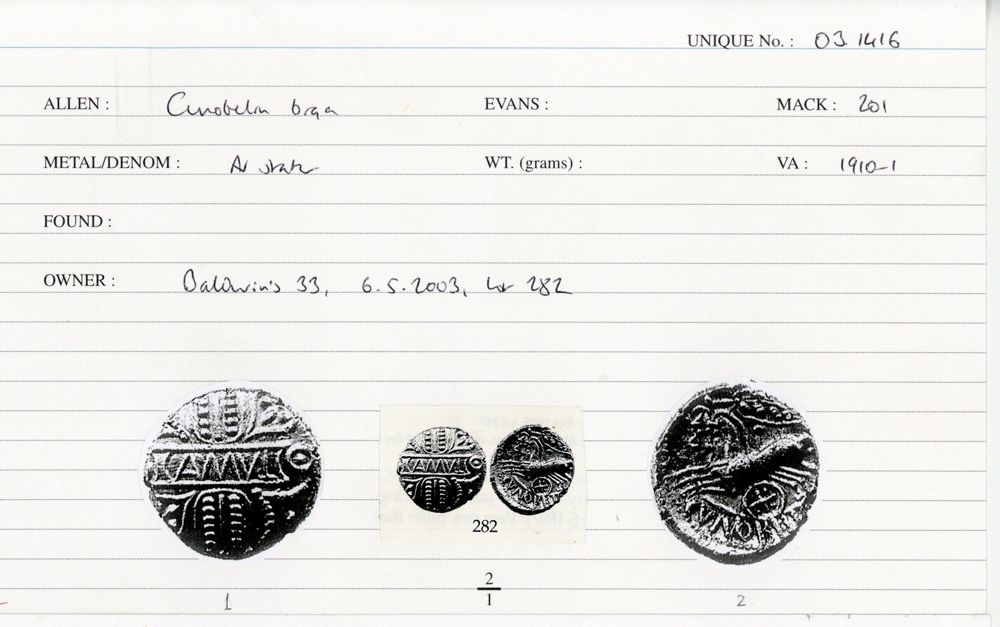 UNIQUE No. : 03 1416
ALLEN : Cunobelin biga EVANS : MACK : 201
METAL/DENOM : AV stater WT. (grams) : VA : 1910-1
FOUND :
OWNER : Baldwin's 33, 6.5.2003, lot 282
CAMVL
282
2
1
1
2